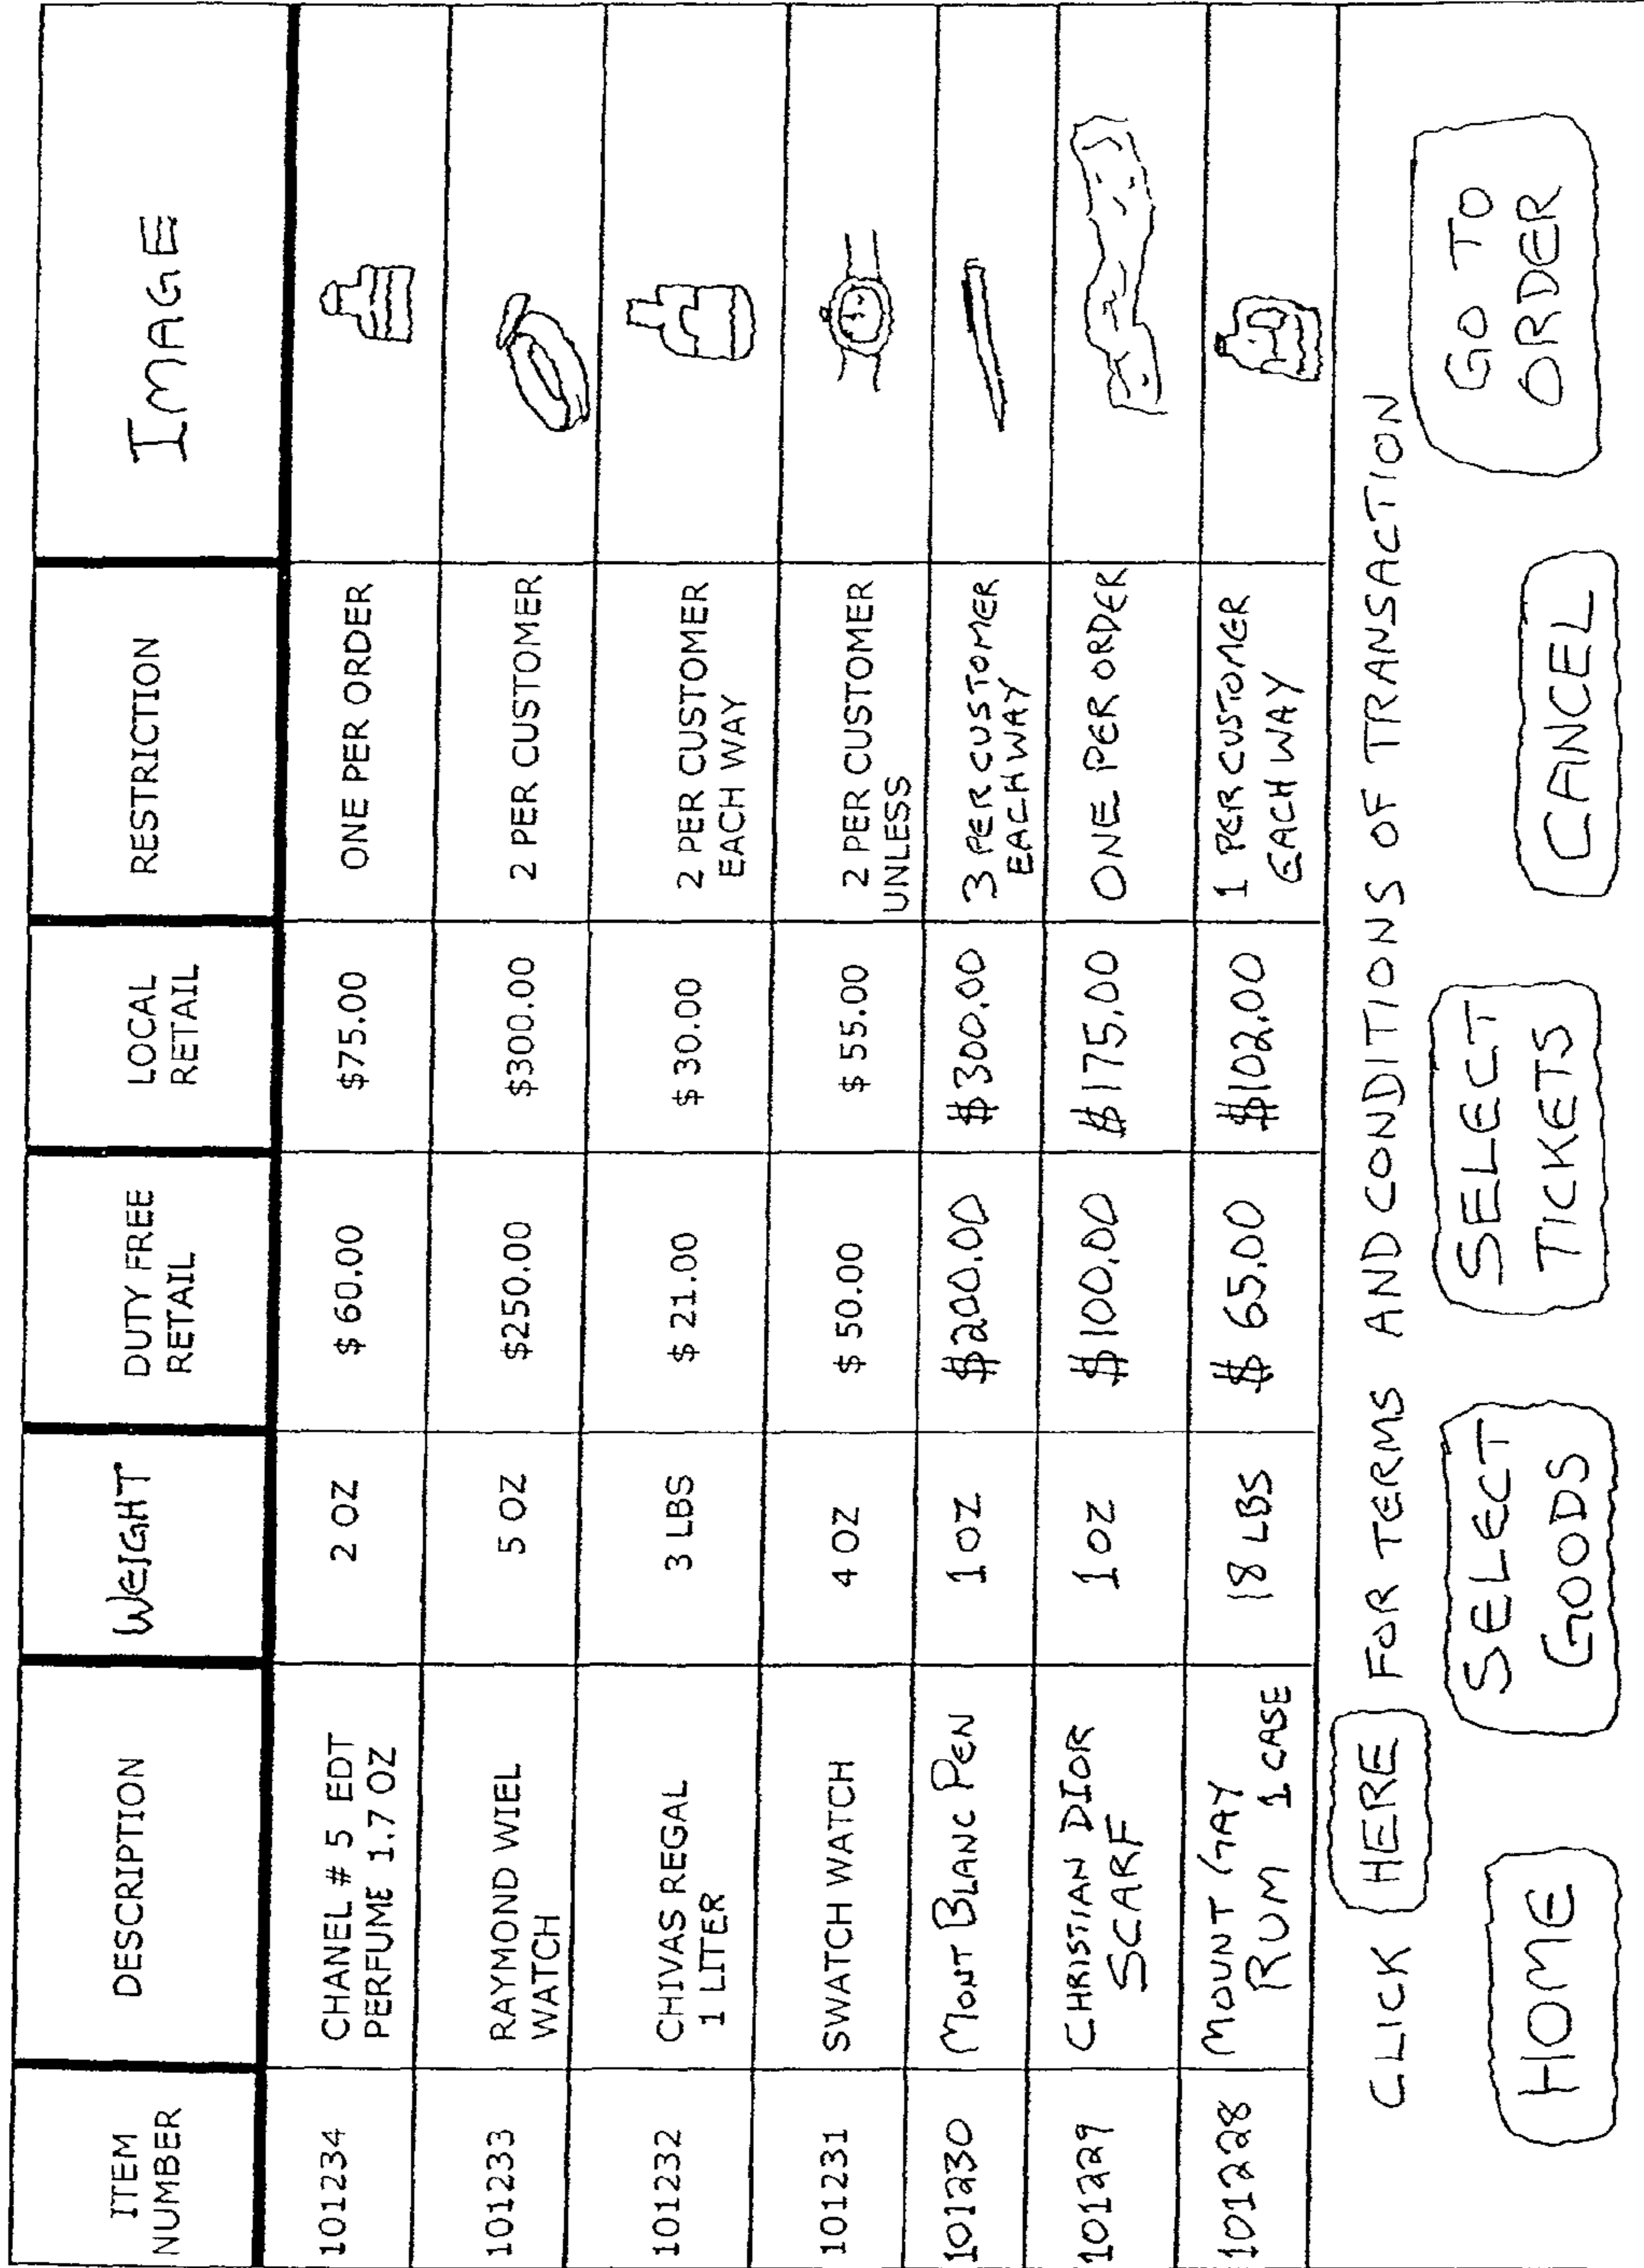 ITEM NUMBER
DESCRIPTION
WEIGHT
DUTY FREE RETAIL
LOCAL RETAIL
RESTRICTION
IMAGE
101234
CHANEL # 5 EDT
PERFUME 1.7 OZ
2 OZ
$ 60.00
$75.00
ONE PER ORDER
101233
RAYMOND WIEL
WATCH
5 OZ
$250.00
$300.00
2 PER CUSTOMER
101232
CHIVAS REGAL
1 LITER
3 LBS
$ 21.00
$ 30.00
2 PER CUSTOMER
EACH WAY
101231
SWATCH WATCH
4 OZ
$ 50.00
$ 55.00
2 PER CUSTOMER
UNLESS
101230
MONT BLANC PEN
1 OZ
$200.00
$300.00
3 PER CUSTOMER
EACH WAY
101229
CHRISTIAN DIOR
SCARF
1 OZ
$100.00
$175.00
ONE PER ORDER
101228
MOUNT GAY
RUM 1 CASE
18 LBS
$ 65.00
$102.00
1 PER CUSTOMER
EACH WAY
CLICK HERE FOR TERMS AND CONDITIONS OF TRANSACTION
HOME
SELECT
GOODS
SELECT
TICKETS
CANCEL
GO TO
ORDER